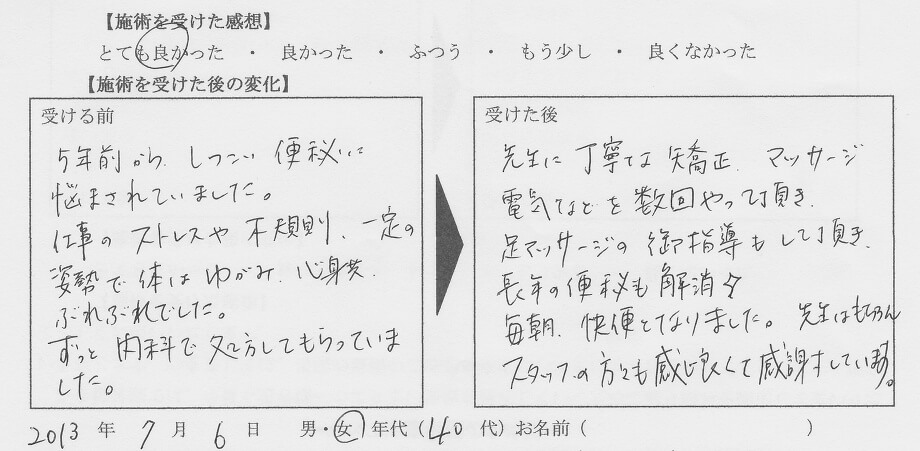 【施術を受けた感想】
とても良かった ・ 良かった ・ ふつう ・ もう少し ・ 良くなかった
【施術を受けた後の変化】
受ける前
5年前から、しつこい便秘に
悩まされていました。
仕事のストレスや不規則、一定の
姿勢で体はゆがみ、心身共、
ぶれぶれでした。
ずっと内科で処方してもらっていま
した。
受けた後
先生に丁寧な矯正、マッサージ
電気などを数回やって頂き、
足マッサージの御指導もして頂き、
長年の便秘も解消
毎朝、快便となりました。先生はもちろん
スタッフの方々も感じ良くて感謝しています。
2013 年 7 月 6 日 男・女 年代（40 代）お名前（ ）